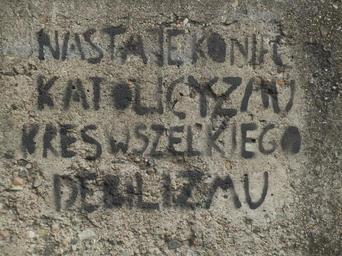 NASTAJE KONIEC
KATOLICYZMU
KRES WSZELKIEGO
DEBILIZMU